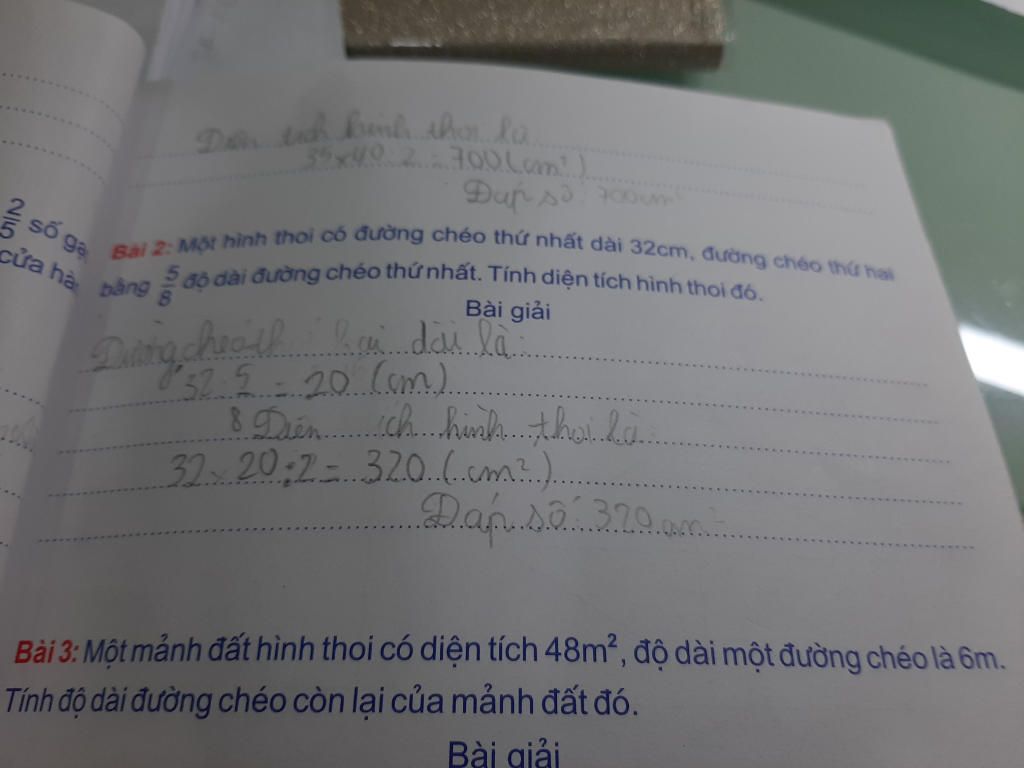 Diện tích hình thoi là
35 x 40 : 2 = 700 (cm²)
Đáp số: 700cm²
2/5 số gạ
cửa hà
Bài 2: Một hình thoi có đường chéo thứ nhất dài 32cm, đường chéo thứ hai
bằng 5/8 độ dài đường chéo thứ nhất. Tính diện tích hình thoi đó.
Bài giải
Đường chéo th hai dài là:
32 . 5/8 = 20 (cm)
Diện ích hình thoi là:
32 x 20 : 2 = 320 (cm²)
Đáp số: 320cm²
Bài 3: Một mảnh đất hình thoi có diện tích 48m², độ dài một đường chéo là 6m.
Tính độ dài đường chéo còn lại của mảnh đất đó.
Bài giải